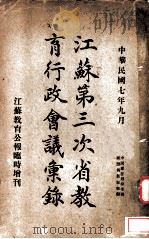 中華民國七年九月
江蘇第三次省教
育行政會議彙錄
江蘇教育公報臨時增刊